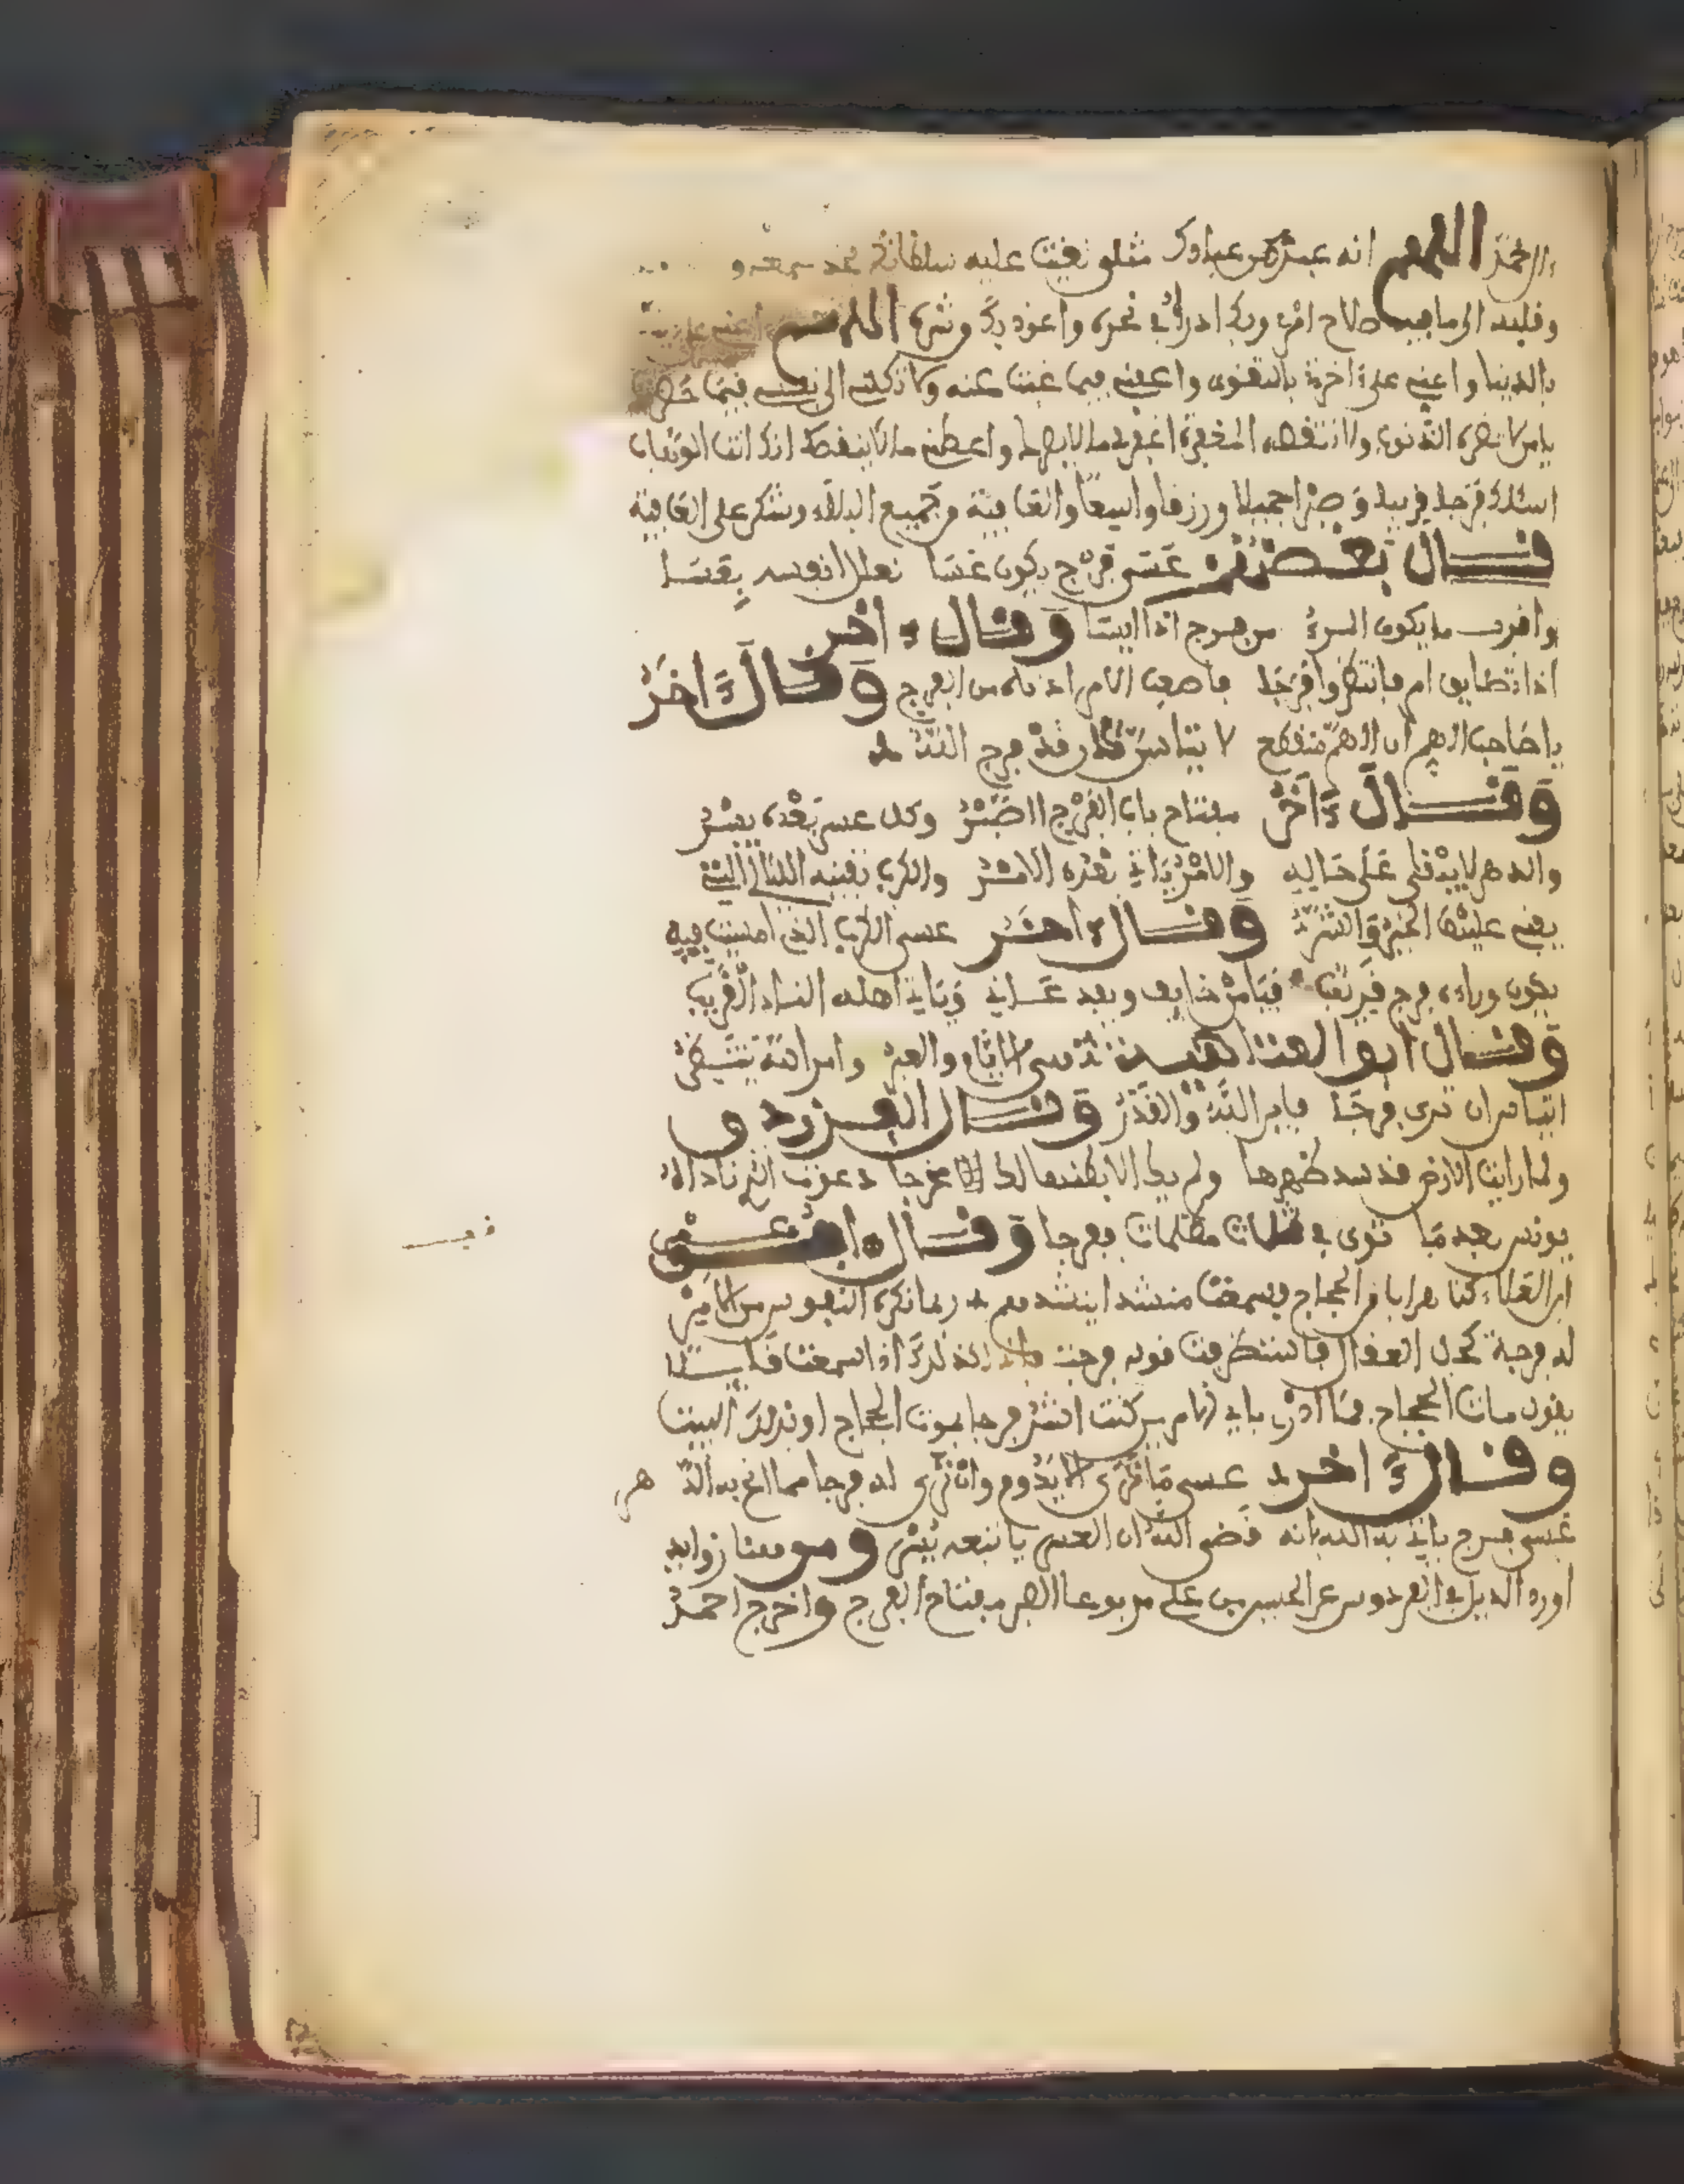 الرحمة اللهم انه عبد من عبادك مثلي القيت عليه سلطانك فخذ بسمعه و
وقلبه الى ما فيه صلاح امري وبك ادرأ في نحره واعوذ بك من شره اللهم اعني على
بالدنيا واعني على اخرة بالتقوى واعني فيما غبت عنه ولا تكلني الى نفسي فيما حضرت
يا من لا تضره الذنوب ولا تنقصه المغفرة اغفر لي ما لا يضرك واعطني ما لا ينقصك انك انت الوهاب
اسئلك فرجا قريبا وصبرا جميلا ورزقا واسعا والعافية من جميع البلاء وشكر على العافية
قال بعضهم عسى فرج يكون عسا نعلل انفسنا بعسا
واقرب ما يكون المرء من فرج اذا ايسا وقال ءاخر
اذا تضايق امر فانتظر فرجا فاصعب الامر ادناه من الفرج وقال ءاخر
يا صاحب الهم ان الهم منقطع لا تيأسن كان قد فرج الله
وقال ءاخر مفتاح باب الفرج الصبر وكل عسر بعده يسر
والدهر لا يبقى على حاله والامر ياتي بعده الامر والكرب تفنيه الليالي التي
يفنى عليها الخير والشر وقال ءاخر عسى الكرب الذي امسيت فيه
يكون وراءه فرج قريب فيامن خايف ويفك عاني وياتي اهله الناء الغريب
وقال ابو العتاهية
وقال الفرزدق
ولما رايت الارض قد سد ظهرها ولم يك الا بطنها لك مخرجا دعوت الذي ناداه
يونس بعد ما ثوى في ثلاث مظلمات ففرجا وقال ابو عمرو
ابن العلاء كنا هرابا من الحجاج فسمعت منشدا ينشد ربما تكره النفوس من الامر
له فرجة كحل العقال فاستظرفت قوله فرجة فانا كذلك اذ سمعت قايلا
يقول مات الحجاج فما ادري باي الامرين كنت اشد فرحا بموت الحجاج او بذلك البيت
وقال ءاخر عسى ما ترى الا يدوم وان ترى له فرجا مما الح به الدهر
عسى فرج ياتي به الله انه قضى الله ان العسر ياتبعه يسر
اورد الديلمي في الفردوس عن الحسين بن علي مرفوعا الصبر مفتاح الفرج واخرج احمد